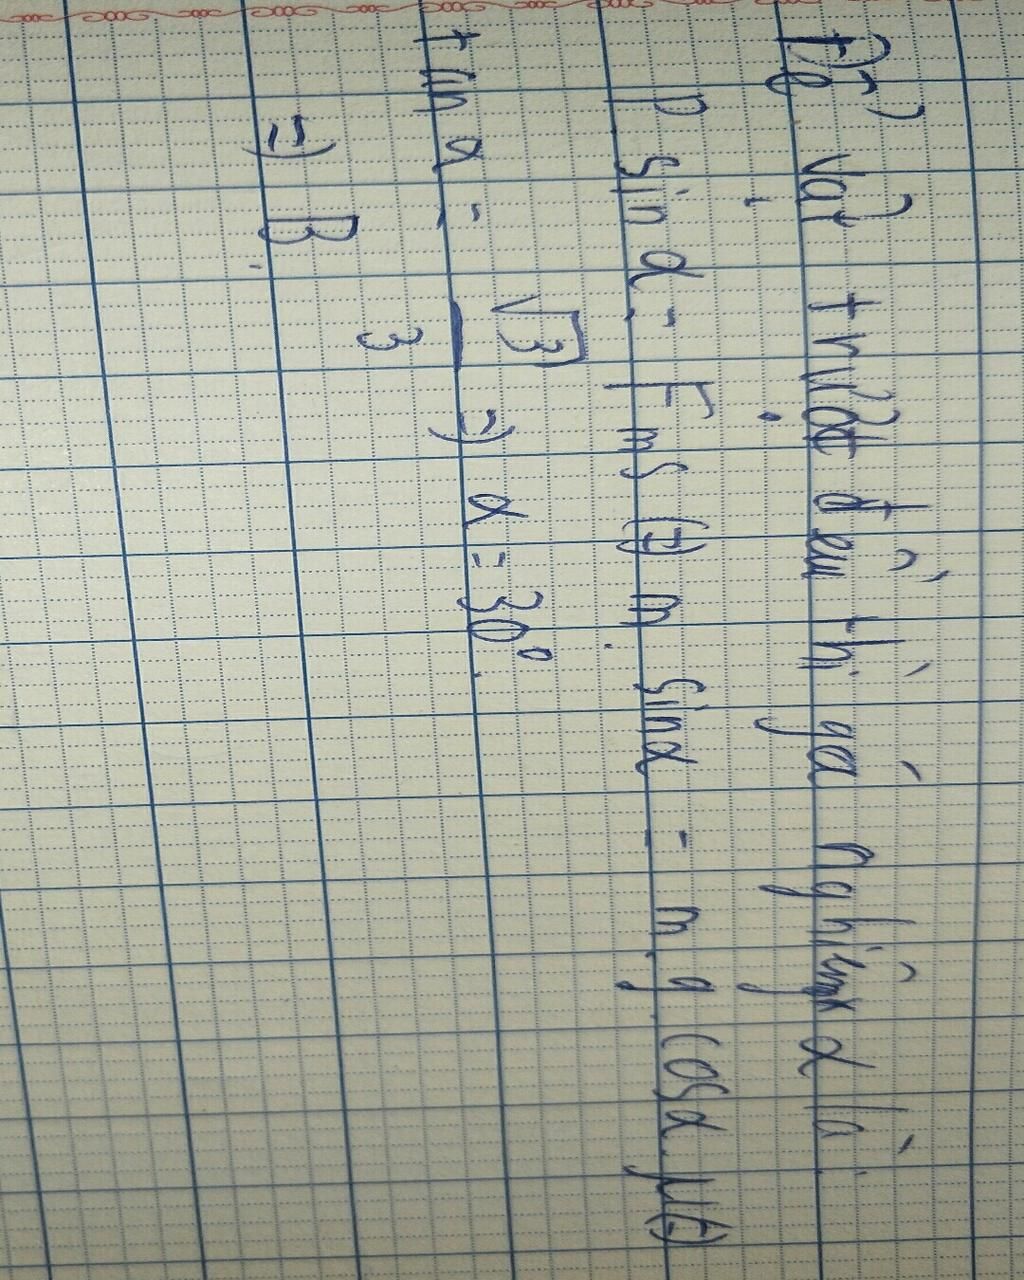 Để vật trượt đều thì giá nghiêng α là
P sin α = Fms ⇔ m sinα = m g cosα μ ⇔
tan α = √3/3 ⇒ α = 30°
⇒ B